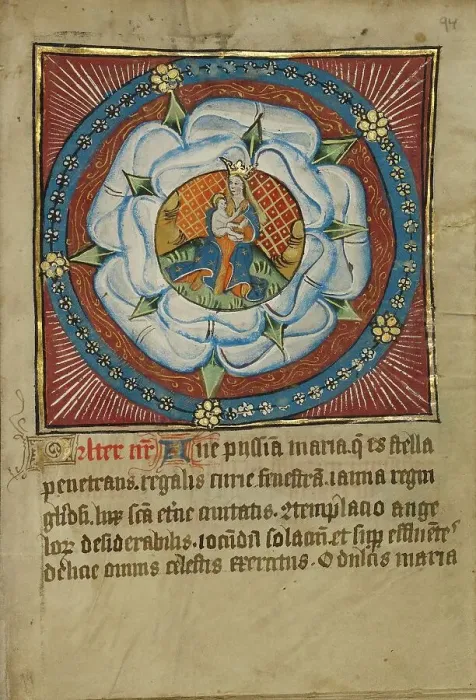 94
Pater nr̄ Aue pijssīa maria. q̄ es stella
penetrans. regalis curie fenestrā. ianua regni
gl̄iosi. lux scā et̄ne ciuitatis. ꝯtemplacio ange
loꝝ desiderabilis. iocundū solaciū. et sup̄ effluente
delicie omnis celestis exercitus. O dulcis maria